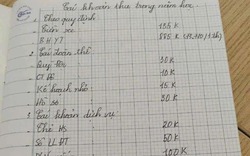 Các khoản thu trong năm học
1. Theo quy định
Tiền xe 135K
BHYT 885K
2. Các đoàn thể
Quỹ Đội 30K
CTĐ 10K
Kế hoạch nhỏ 15K
Hồ sơ 30K
3. Các khoản dịch vụ
Thẻ HS 20K
Sổ LLĐT 50K
100K